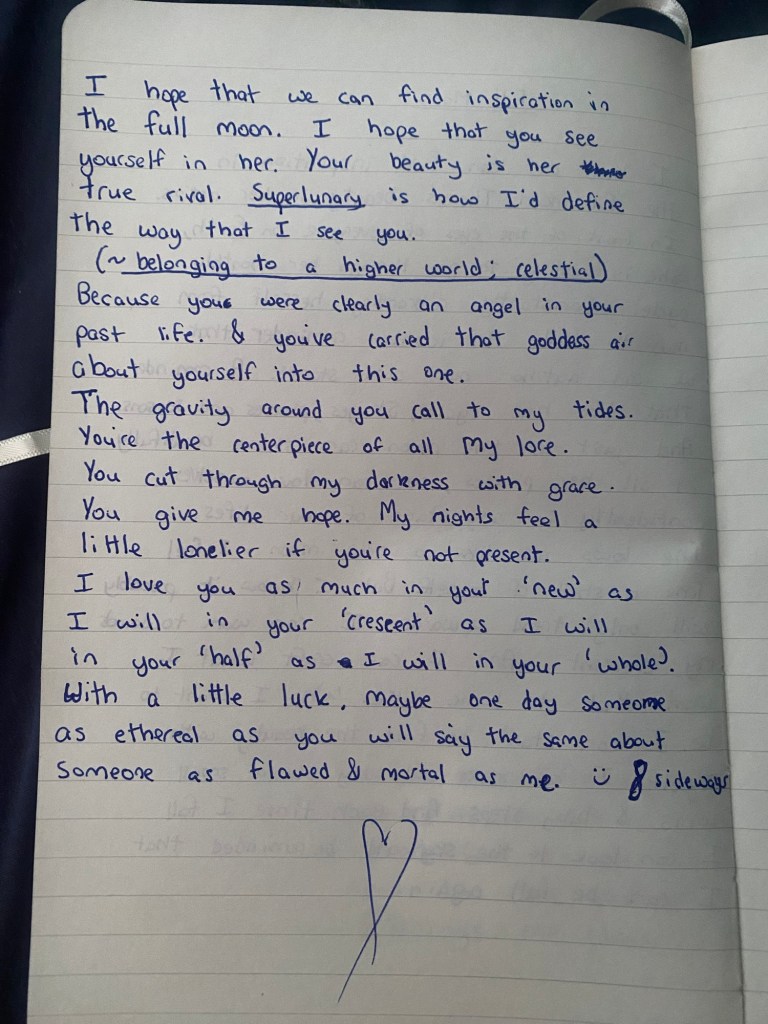 I hope that we can find inspiration in
the full moon. I hope that you see
yourself in her. Your beauty is her
true rival. Superlunary is how I'd define
the way that I see you.
(~ belonging to a higher world; celestial)
Because you were clearly an angel in your
past life. & you've carried that goddess air
about yourself into this one.
The gravity around you call to my tides.
You're the centerpiece of all my lore.
You cut through my darkness with grace.
You give me hope. My nights feel a
little lonelier if you're not present.
I love you as much in your 'new' as
I will in your 'crescent' as I will
in your 'half' as I will in your 'whole'.
With a little luck, maybe one day someone
as ethereal as you will say the same about
someone as flawed & mortal as me. :) 8 sideways